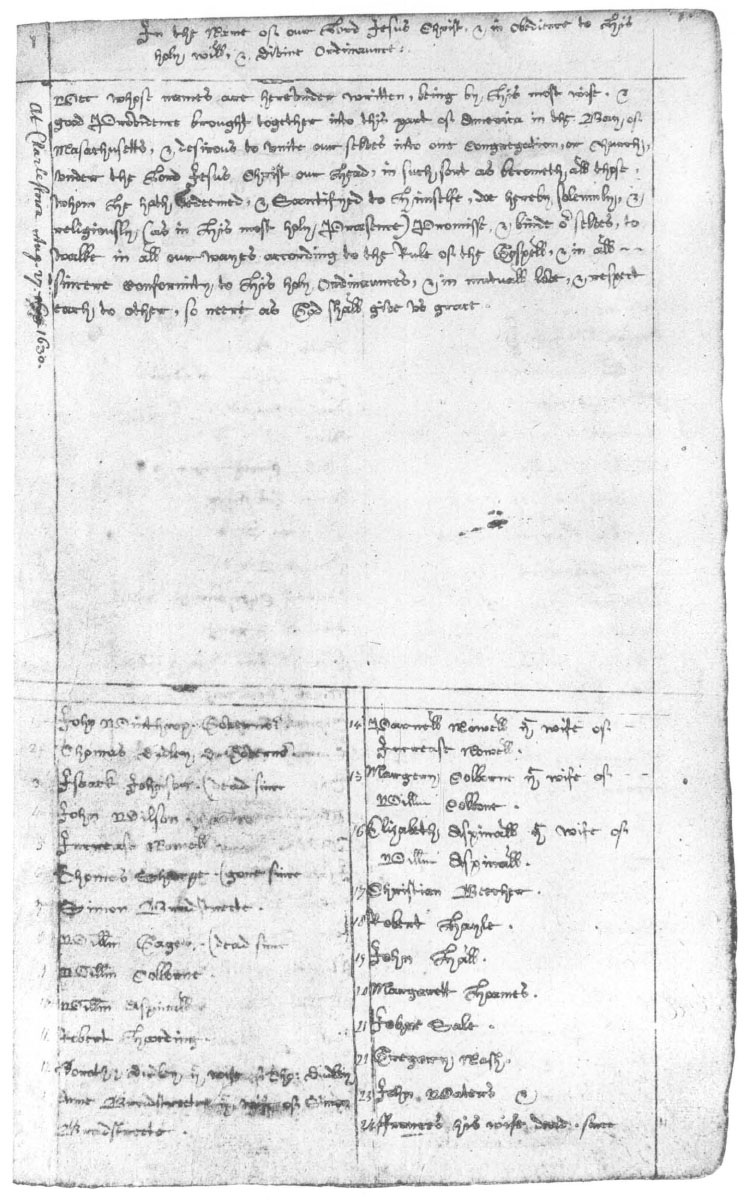 In the Name of our Lord Jesus Christ, & in Obedience to His
holy will, & Divine Ordinaunce.
Wee whose names are hereunder written, being by His most wise, &
good Providence brought together into this part of America in the Bay of
Masachusetts, & desirous to unite our selves into one Congregation, or Church,
under the Lord Jesus Christ our Head, in such sort as becometh all those
whom He hath Redeemed, & Sanctifyed to Himselfe, doe hereby solemnly, &
religiously, (as in His most holy Præsence) Promisse, & binde oʳ selves, to
walke in all our wayes according to the Rule of the Gospell, & in all
sincere Conformity to His holy Ordinaunces, & in mutuall love, & respect
each to other, so neere as God shall give us grace.
At Charlestown Aug. 27. 1630.
John Winthrop Governoʳ
Thomas Dudley Governoʳ
3 Isaack Johnson (dead since
John Wilson
5 Increase Nowell
6 Thomas Sharpe (gone since
7 Simon Bradstreete.
Willm Gager. (dead since
Willm Colborne.
Willm Aspinwall
11 Robert Harding.
12 Dorothy Dudley yᵉ wife of Tho: Dudley
Anne Bradstreete yᵉ wife of Simon
Bradstreete.
14 Parnell Nowell yᵉ wife of
Increase Nowell.
15 Margery Colborne yᵉ wife of
Willm Colborne.
16 Elizabeth Aspinwall yᵉ wife of
Willm Aspinwall.
17 Christian Beecher.
18 Robert Hayle.
19 John Hall.
20 Margarett Hoames.
21 John Sale.
21 Gregory Nash.
23 John Waters &
24 ffrances his wife dead since